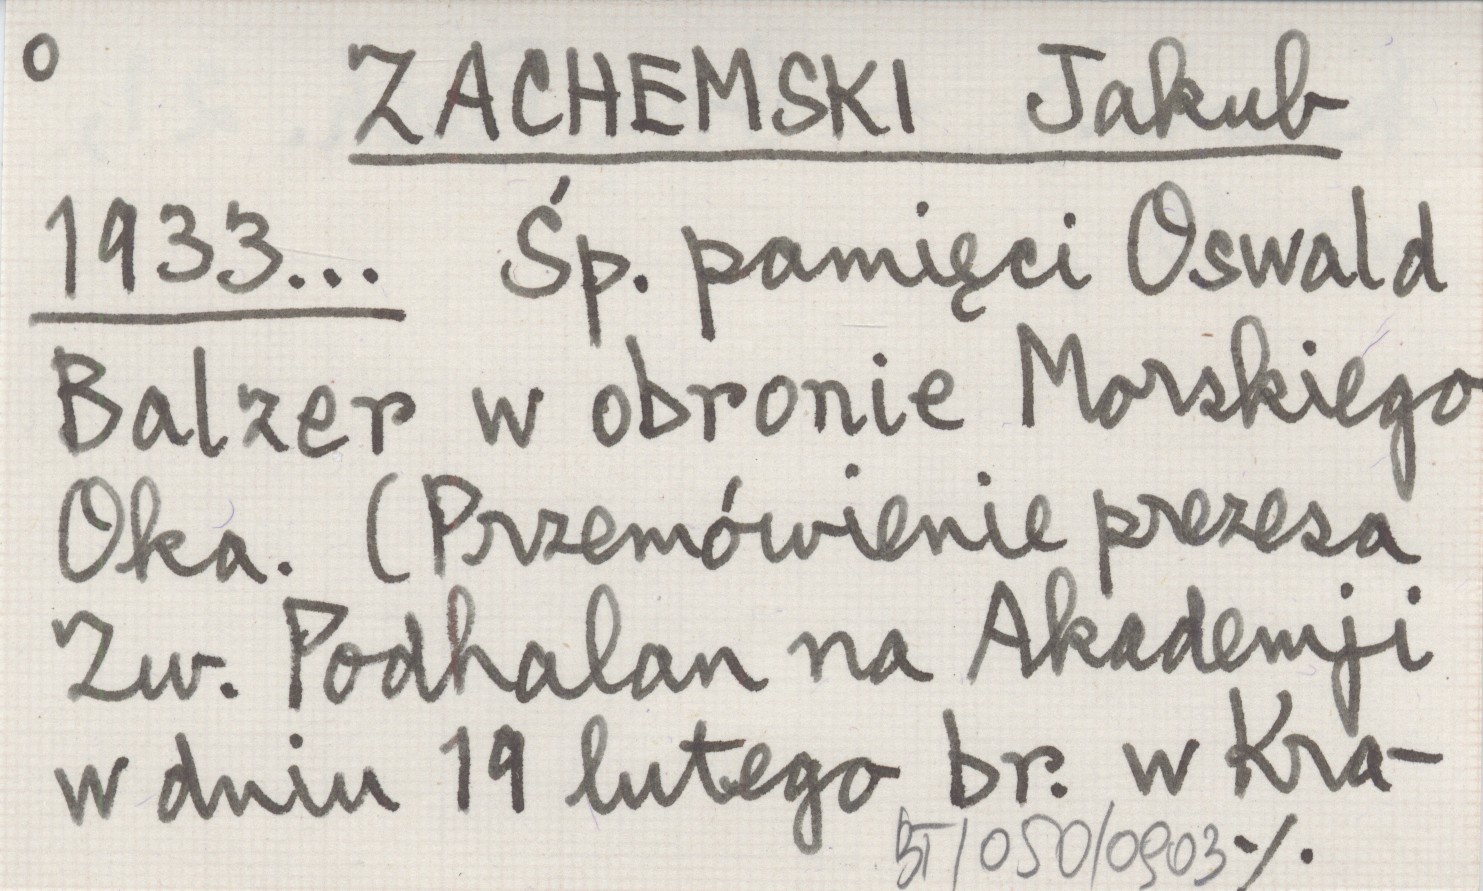 o ZACHEMSKI Jakub
1933... Śp. pamięci Oswald
Balzer w obronie Morskiego
Oka. (Przemówienie prezesa
Zw. Podhalan na Akademji
w dniu 19 lutego br. w Kra-
BT/050/0903 ./.